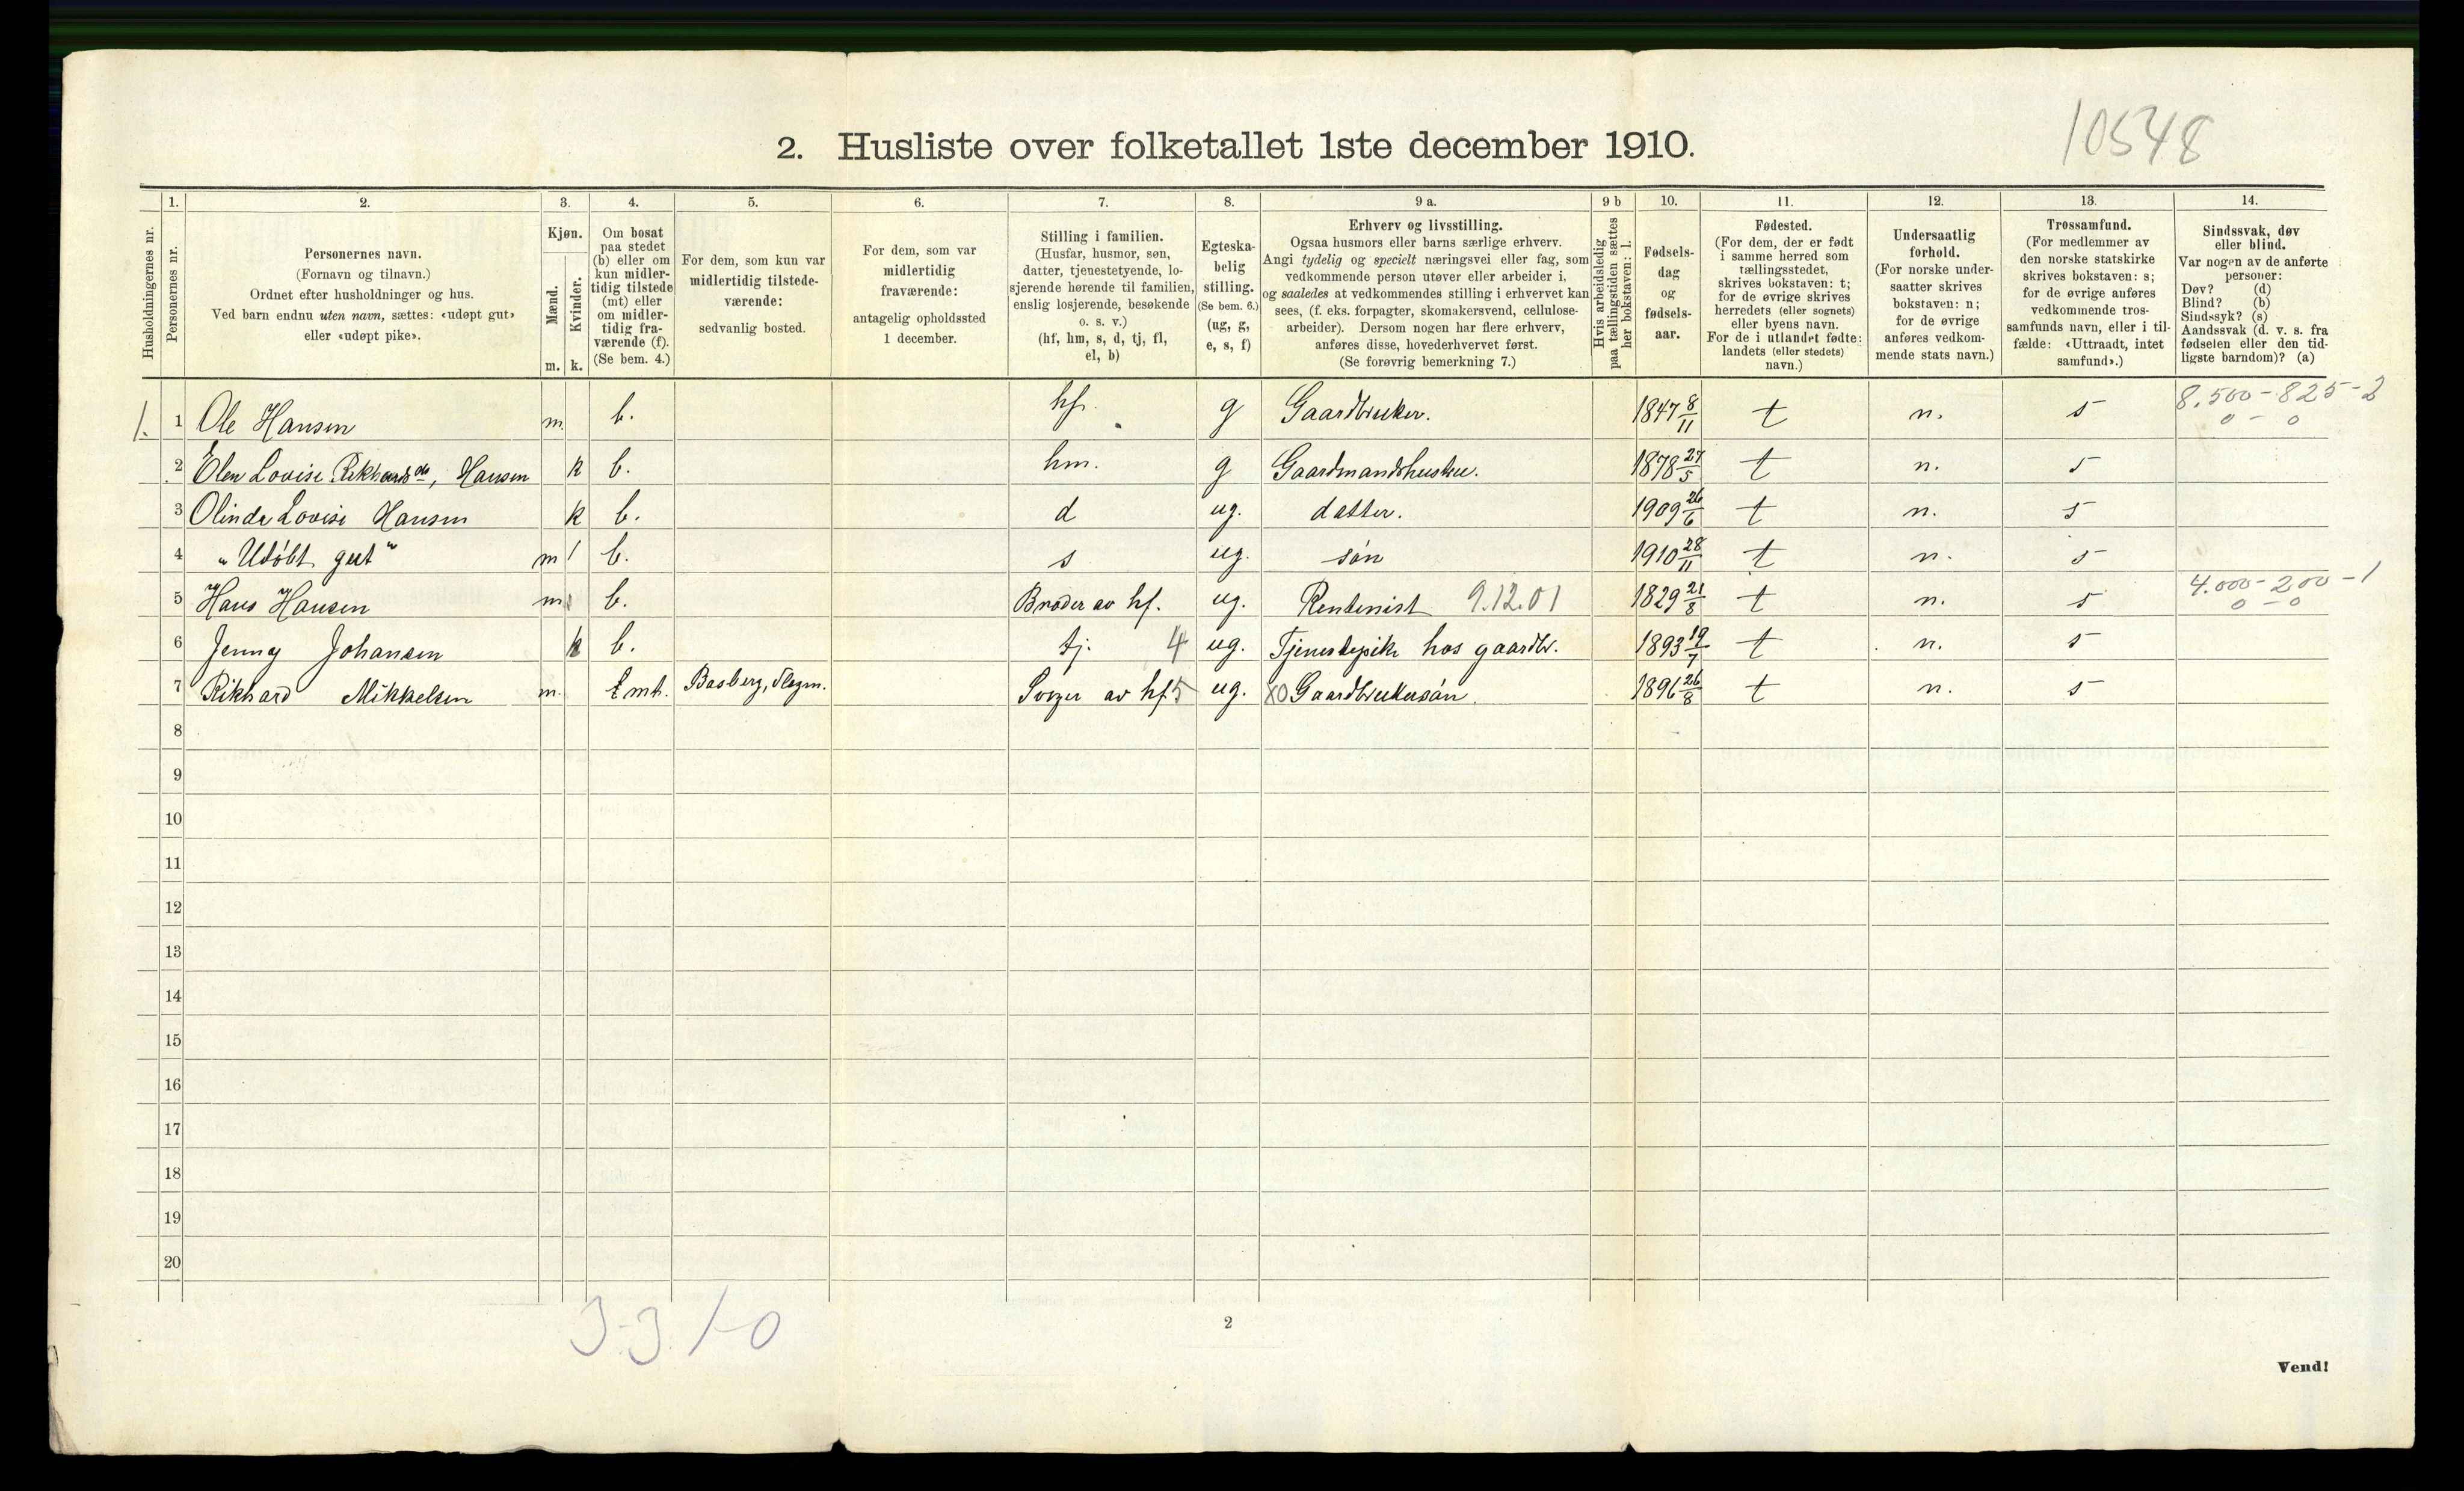 10548
2. Husliste over folketallet 1ste december 1910.
1. 2. 3. 4. 5. 6. 7. 8. 9 a. 9 b 10. 11. 12. 13. 14.
Husholdningernes nr.
Personernes nr.
Personernes navn.
(Fornavn og tilnavn.)
Ordnet efter husholdninger og hus.
Ved barn endnu uten navn, sættes: «udøpt gut»
eller «udøpt pike».
Kjøn.
Mænd.
Kvinder.
m. k.
Om bosat
paa stedet
(b) eller om
kun midler-
tidig tilstede
(mt) eller
om midler-
tidig fra-
værende (f).
(Se bem. 4.)
For dem, som kun var
midlertidig tilstede-
værende:
sedvanlig bosted.
For dem, som var
midlertidig
fraværende:
antagelig opholdssted
1 december.
Stilling i familien.
(Husfar, husmor, søn,
datter, tjenestetyende, lo-
sjerende hørende til familien,
enslig losjerende, besøkende
o. s. v.)
(hf, hm, s, d, tj, fl,
el, b)
Egteska-
belig
stilling.
(Se bem. 6.)
(ug, g,
e, s, f)
Erhverv og livsstilling.
Ogsaa husmors eller barns særlige erhverv.
Angi tydelig og specielt næringsvei eller fag, som
vedkommende person utøver eller arbeider i,
og saaledes at vedkommendes stilling i erhvervet kan
sees, (f. eks. forpagter, skomakersvend, cellulose-
arbeider). Dersom nogen har flere erhverv,
anføres disse, hovederhvervet først.
(Se forøvrig bemerkning 7.)
Hvis arbeidsledig
paa tællingstiden sættes
her bokstaven: l.
Fødsels-
dag
og
fødsels-
aar.
Fødested.
(For dem, der er født
i samme herred som
tællingsstedet,
skrives bokstaven: t;
for de øvrige skrives
herredets (eller sognets)
eller byens navn.
For de i utlandet fødte:
landets (eller stedets)
navn.)
Undersaatlig
forhold.
(For norske under-
saatter skrives
bokstaven: n;
for de øvrige
anføres vedkom-
mende stats navn.)
Trossamfund.
(For medlemmer av
den norske statskirke
skrives bokstaven: s;
for de øvrige anføres
vedkommende tros-
samfunds navn, eller i til-
fælde: «Uttraadt, intet
samfund».)
Sindssvak, døv
eller blind.
Var nogen av de anførte
personer:
Døv? (d)
Blind? (b)
Sindssyk? (s)
Aandssvak (d. v. s. fra
fødselen eller den tid-
ligste barndom)? (a)
1. 1 Ole Hansen m. b. hf. g Gaardbruker. 1847 8/11 t n. s 8.500-825-2
0 - 0
2 Elen Lovise Rikhardsdtr, Hansen k b. hm. g Gaardmandshustru. 1878 27/5 t n. s
3 Olinda Lovise Hansen k b. d ug. datter. 1909 26/6 t n. s
4 "Udöbt gut" m b. s ug. sön 1910 28/11 t n. s
5 Hans Hansen m b. Broder av hf. ug. Rentenist 9.12.01 1829 21/8 t n. s 4.000-200-1
0 - 0
6 Jenny Johansen k b. tj. 4 ug. Tjenestepike hos gaardbr. 1893 19/7 t n. s
7 Rikhard Mikkelsen m. mt. Basberg, Slagen. Svoger av hf 5 ug. XO Gaardbrukersön. 1896 26/8 t n. s
8
9
10
11
12
13
14
15
16
17
18
19
20
3-3 1-0
2
Vend!